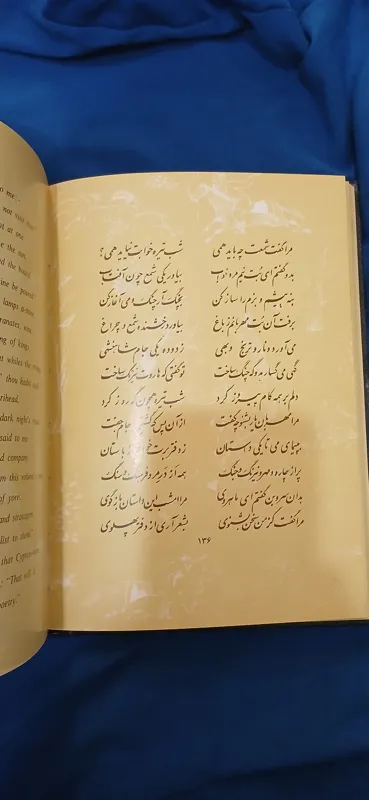 o me:—
at one
e the sun,
nd the board
ine be poured"
lamps
granates, wine
ng of kings
t whiles the
" thou hadst
rehead.
dark night's
said to me
d company
m this volume
of yore.
and stratagem,
list to them."
that Cypress-
: "That
oetry."
مرا گفت شمعت چه باید همی شب تیره خوابت نیاید همی؟
بدو گفتم ای بت نیم مرد خواب بیاور یکی شمع چون آفتاب
بنه پیشم و بزم را ساز کن بچنگ آر چنگ و می آغاز کن
برفت آن بت مهربانم ز باغ بیاورد رخشنده شمع و چراغ
می آورد و نار و ترنج و بهی زدوده یکی جام شاهنشهی
گهی می گسارید و گه چنگ ساخت تو گفتی که هاروت نیرنگ ساخت
دلم بر همه کام پیروز کرد شب تیره همچون گه روز کرد
مرا مهربان یار بشنو چه گفت از آن پس که گشتیم با جام جفت
بپیمای می تا یکی داستان ز دفتر برت خوانم از باستان
پر از چاره و مهر و نیرنگ و جنگ همه از در مرد فرهنگ و سنگ
بدان سروبن گفتم ای ماهروی مرا امشب این داستان بازگوی
مرا گفت گر من سخن بشنوی بشعر آری از دفتر پهلوی
۱۳۶